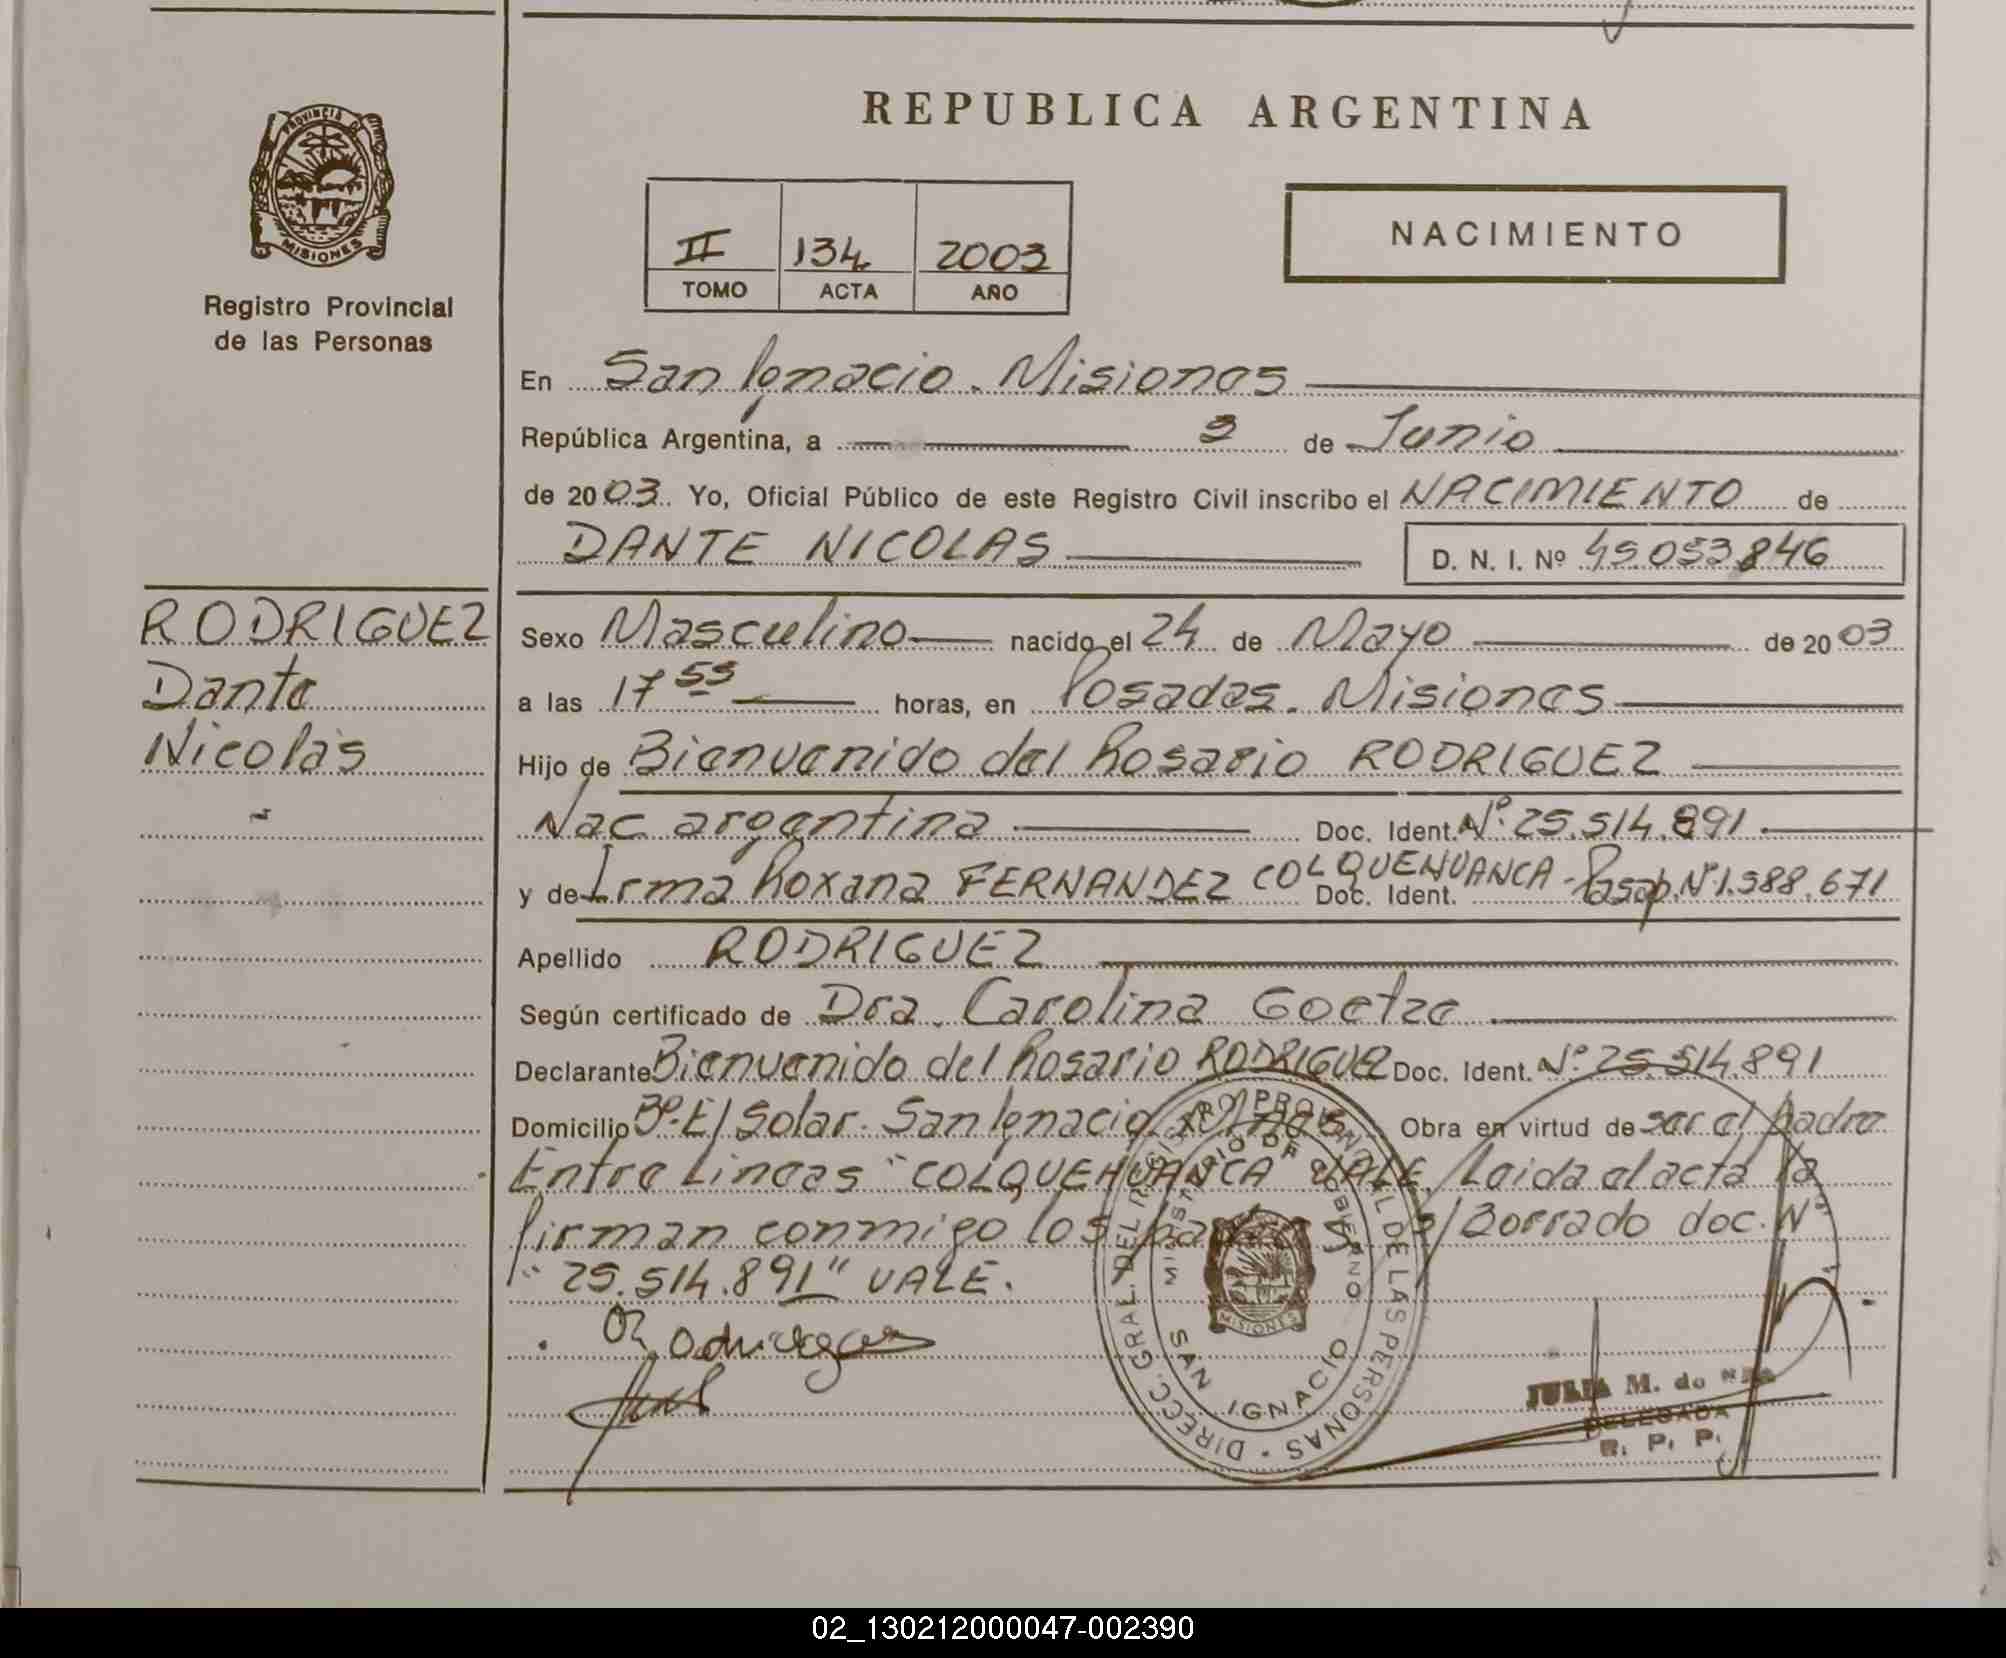 REPUBLICA ARGENTINA
PROVINCIA DE
MISIONES
Registro Provincial
de las Personas
II 134 2003
TOMO ACTA AÑO
NACIMIENTO
En San Ignacio. Misiones
República Argentina, a 3 de Junio
de 2003. Yo, Oficial Público de este Registro Civil inscribo el NACIMIENTO de
DANTE NICOLAS D. N. I. Nº 45.053.846
RODRIGUEZ
Dante
Nicolás
Sexo Masculino nacido el 24 de Mayo de 2003
a las 17 55 horas, en Posadas. Misiones
Hijo de Bienvenido del Rosario RODRIGUEZ
Nac argentina Doc. Ident. Nº. 25.514.891.
y de Irma Roxana FERNANDEZ COLQUEHUANCA - Doc. Ident. Pasap. Nº 1.588.671
Apellido RODRIGUEZ
Según certificado de Dra. Carolina Goetze
Declarante Bienvenido del Rosario RODRIGUEZ Doc. Ident. Nº. 25.514.891
Domicilio Bº. El Solar. San Ignacio. Mnes Obra en virtud de ser el padre
Entre Lineas "COLQUEHUANCA" VALE. Leida el acta la
firman conmigo los padres S/Borrado doc. Nº
"25.514.891" VALE.
DIRECC. GRAL. DEL REGISTRO PROVINCIAL DE LAS PERSONAS
MINISTERIO DE GOBIERNO
MISIONES
SAN IGNACIO
JULIA M. de
DELEGADA
R. P. P.
02_130212000047-002390